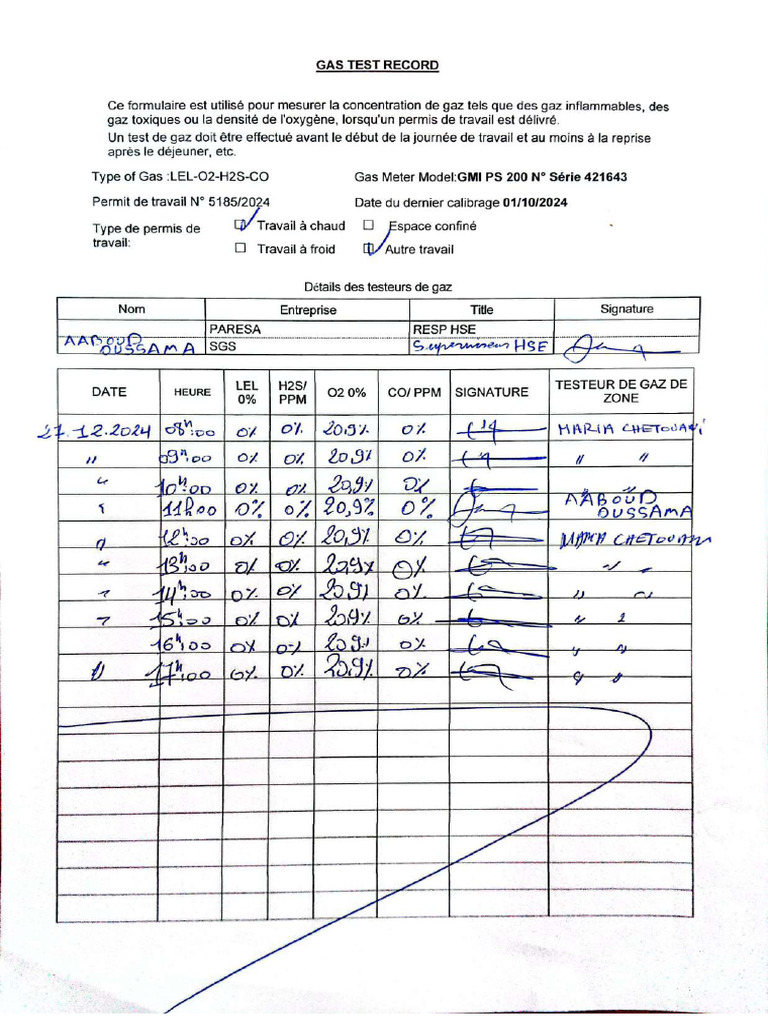 GAS TEST RECORD
Ce formulaire est utilisé pour mesurer la concentration de gaz tels que des gaz inflammables, des
gaz toxiques ou la densité de l'oxygène, lorsqu'un permis de travail est délivré.
Un test de gaz doit être effectué avant le début de la journée de travail et au moins à la reprise
après le déjeuner, etc.
Type of Gas :LEL-O2-H2S-CO Gas Meter Model:GMI PS 200 N° Série 421643
Permit de travail N° 5185/2024 Date du dernier calibrage 01/10/2024
Type de permis de travail: Travail à chaud Espace confiné
Travail à froid Autre travail
Détails des testeurs de gaz
Nom Entreprise Title Signature
PARESA RESP HSE
AABOUD OUSSAMA SGS Superviseur HSE
DATE HEURE LEL 0% H2S/ PPM O2 0% CO/ PPM SIGNATURE TESTEUR DE GAZ DE ZONE
27.12.2024 08h:00 0% 0% 20,9% 0% MARIA CHETOUANI
" 09h:00 0% 0% 20,9% 0% " "
" 10h:00 0% 0% 20,9% 0%
" 11h00 0% 0% 20,9% 0% AABOUD OUSSAMA
" 12h:00 0% 0% 20,9% 0% MARIA CHETOUANI
" 13h:00 0% 0% 20,9% 0% " "
" 14h:00 0% 0% 20,9% 0% " "
" 15h:00 0% 0% 20,9% 0% " "
16h:00 0% 0% 20,9% 0% " "
" 17h:00 0% 0% 20,9% 0% " "